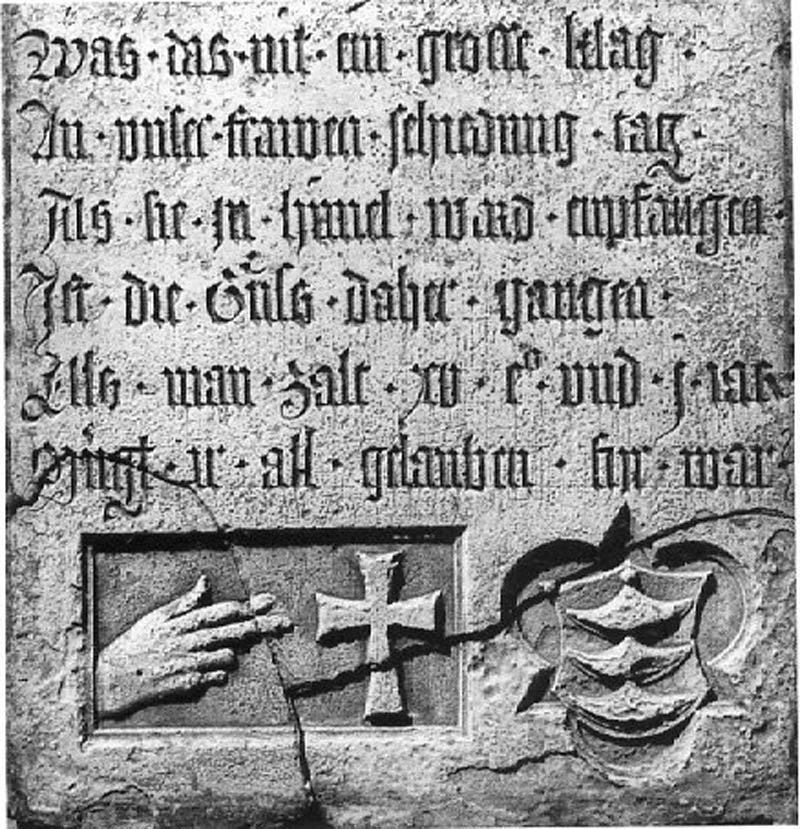 Was · das · nit · ein · grosse · klag ·
An · vnser · frawen · schiedung · tag ·
Als · sie · in · himel · ward · enpfangen ·
Ist · die · Güss · daher · gangen ·
Alls · man · zalt · xv · cᵒ · vnd · j · iar
Mügt · ir · all · gelauben · für · war